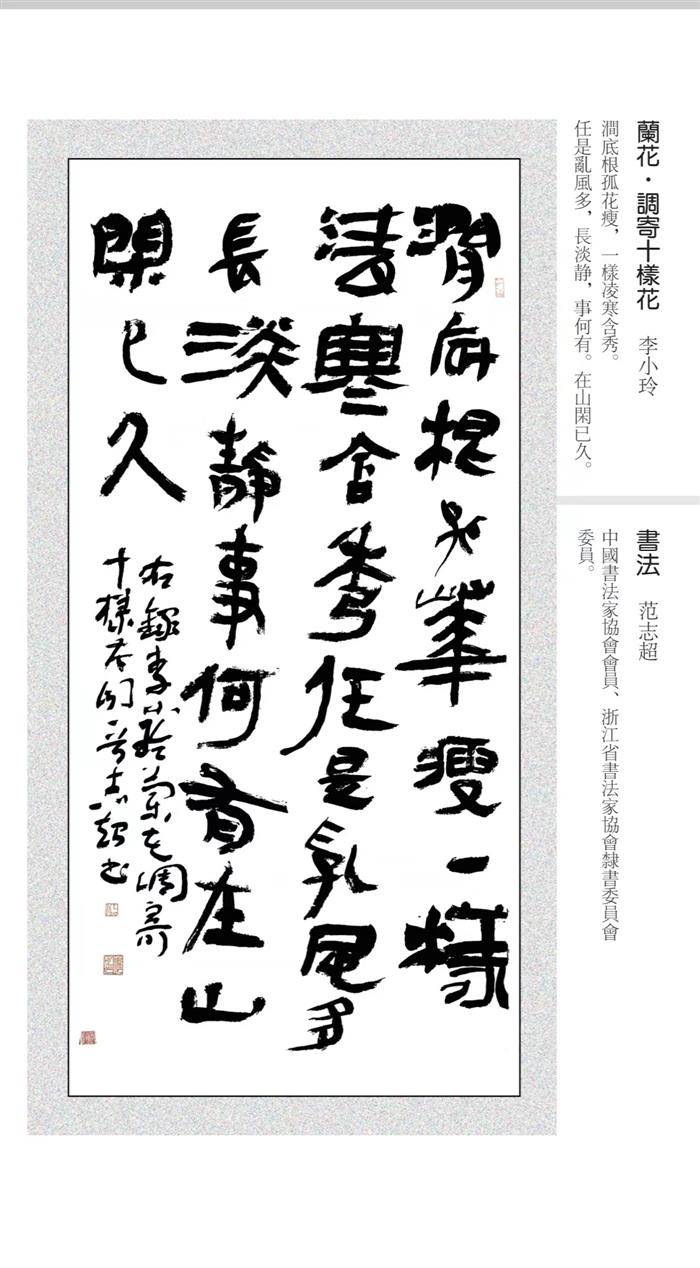 蘭花·調寄十樣花 李小玲
澗底根孤花瘦，一樣凌寒含秀。
任是亂風多，長淡静，事何有。在山閑已久。
書法 范志超
中國書法家協會會員、浙江省書法家協會隸書委員會
委員。
澗底根孤華瘦一樣
凌寒含秀任是乱風多
長淡静事何有在山
閑已久
右録李小玲蘭花調寄
十樣花
志超书